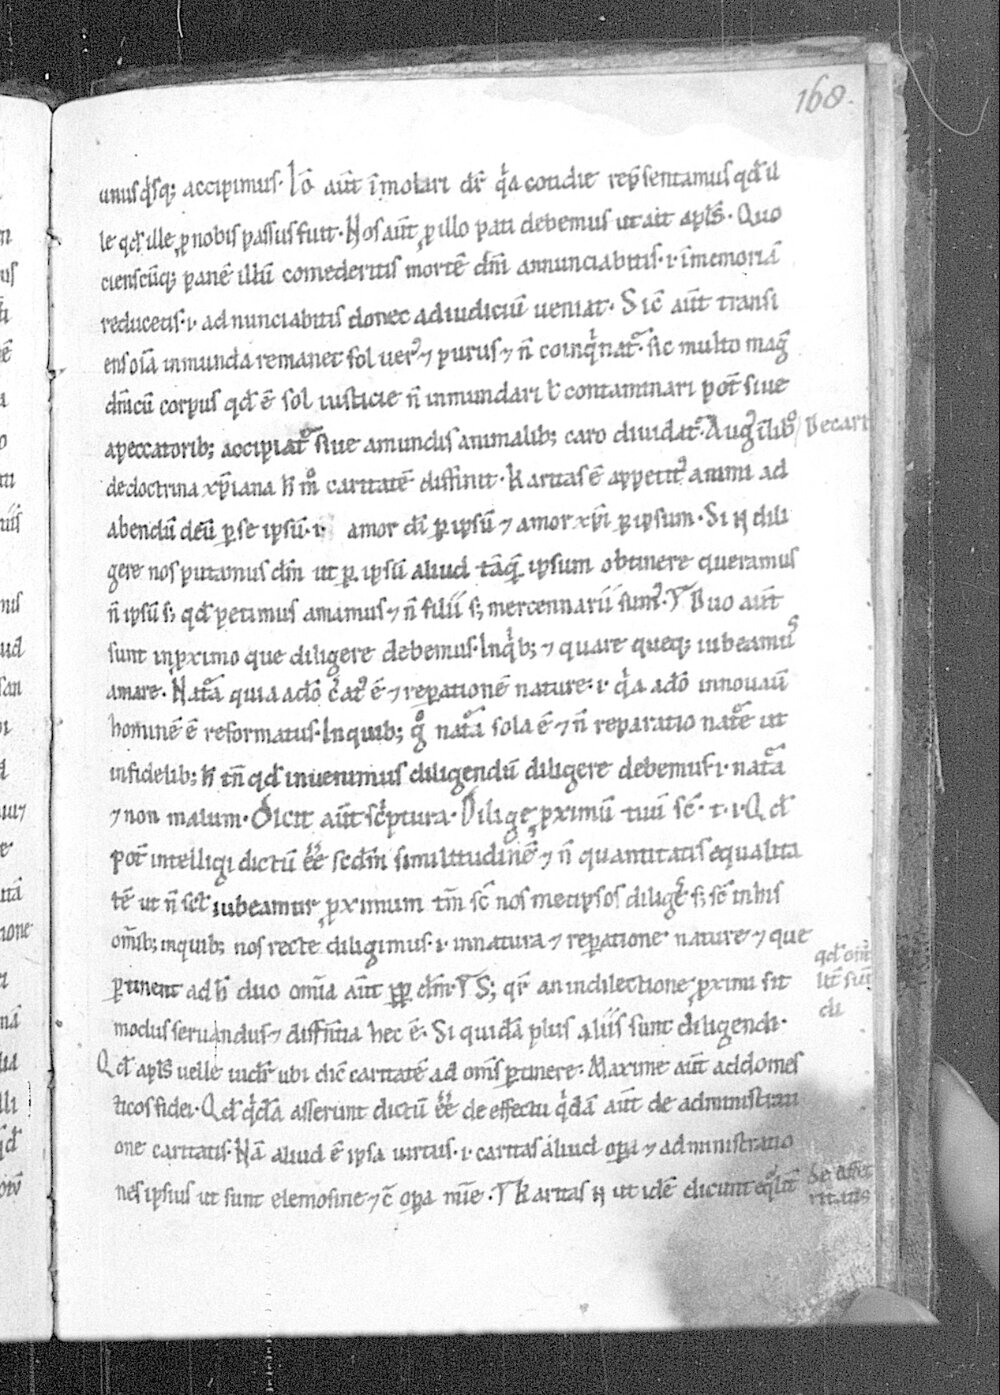 168.
unusq̇sq; accipimus. Iō aut̄ īmolari dr̄ q̇a cotidie rep̄sentamus qd̄ il
le qd̄ ille ꝓ nobis passus fuit. Nos aut̄ ꝓ illo pati debemus ut ait apl̄s. Quo
cienscūq; panē illū comederitis mortē dm̄ annunciabitis .i. ī memoriā
reducetis .i. adnunciabitis donec ad iudiciū ueniat. Sic̄ aut̄ transi
ens oīa inmunda remanet sol uerꝰ ⁊ purus ⁊ n̄ coinq̇nat᷑. sic multo maḡ
dn̄icū corpus qd̄ ē sol iusticie n̄ inmundari ł contaminari pot̄ siue
apeccatorib; accipiat᷑ siue amundis animalib; caro diuidat᷑. Auḡ ī lib̊
de doctrina xp̄iana h̄ m̊ caritatē diffinit. Karitas ē appetitꝰ animi ad
abendū deū ꝑ se ipsū .i. amor dī ꝑ ipsū ⁊ amor xp̄i ꝑ ipsum. Si n̄ dili
gere nos putamus dm̄ ut ꝑ ipsū aliud tāq̄ ipsum obtinere queramus
n̄ ipsū s; qd̄ petimus amamus ⁊ n̄ filii s; mercennarii sumꝰ. ¶ Duo aut̄
sunt inꝓximo que diligere debemus. Inq̇b; ⁊ quare queq; iubeamuˢ
amare. Nat᷑ā quia adō c̄atꝰ ē ⁊ reꝑationē nature .i. q̇a adō innouaū
hominē ē reformatus. Inquib; g̊ nat᷑a sola ē ⁊ n̄ reparatio nat᷑e ut
infidelib; h̄ tn̄ qd̄ inuenimus diligendū diligere debemus .i. nat᷑ā
⁊ non malum. Dicit aut̄ sc̄ptura. Diliges ꝓximū tuū sc̄. t. i. Qd̄
pot̄ intelligi dictū ēē scd̄m similitudinē ⁊ n̄ quantitatis equalita
tē ut n̄ scł iubeamur ꝓximum tm̄ sc̄ nos metipsos diligē s; sc̄ inhis
om̄ib; inquib; nos recte diligimus .i. innatura ⁊ reꝑatione nature ⁊ que
ꝑtinent ad h̄ duo om̄ia aut̄ ꝓꝑ dm̄. ¶ S; qr̄ an indilectione ꝓximi sit
modus seruandus ⁊ diffr̄ntia hec ē. Si quidā plus aliis sunt diligendi.
Qd̄ apl̄s uelle uidet᷑ ubi dic̄ caritatē ad om̄s ꝑtinere. Maxime aut̄ ad domes
ticos fidei. Qd̄ q̇dā asserunt dictū ēē de effectu q̇dā aut̄ de administrati
one caritatis. Nā aliud ē ipsa uirtus .i. caritas aliud oꝑa ⁊ administratio
nes ipsius ut sunt elemosine ⁊ c̄ oꝑa mīe. ¶ Karitas n̄ ut idē dicunt eq̇lit̄
De carit
qd̄ om̄